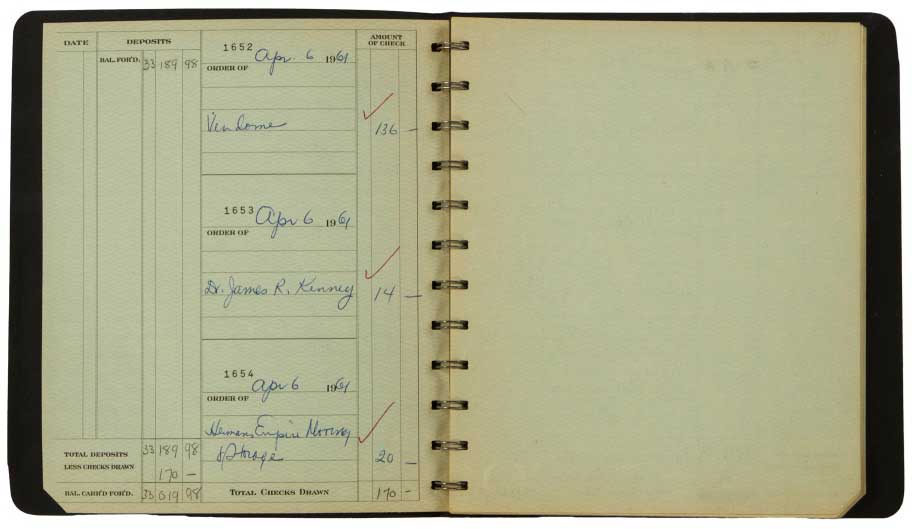 DATE DEPOSITS AMOUNT OF CHECK
BAL. FOR'D. 33 189 98
1652 Apr. 6 1961
ORDER OF
Vendome 136 —
1653 Apr 6 1961
ORDER OF
Dr. James R. Kenney 14 —
1654 Apr 6 1961
ORDER OF
Hermans Empire Moving
& Storage 20 —
TOTAL DEPOSITS 33 189 98
LESS CHECKS DRAWN 170 —
BAL. CARR'D FOR'D. 33 019 98 TOTAL CHECKS DRAWN 170 —